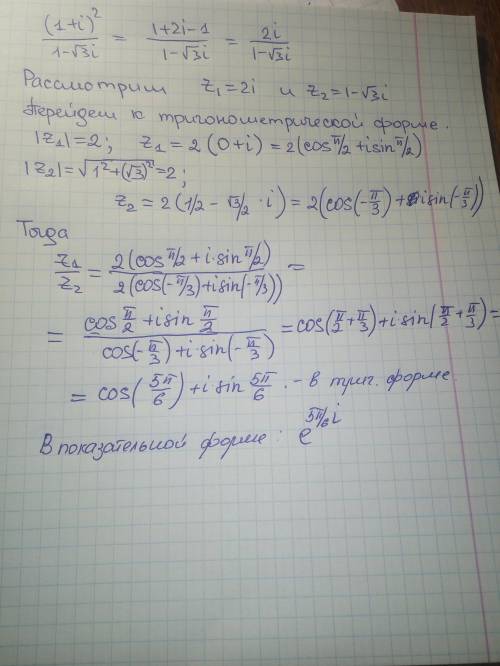 (1+i)²/(1-√3i) = (1+2i-1)/(1-√3i) = 2i/(1-√3i)
Рассмотрим z₁=2i и z₂=1-√3i
Перейдем к тригонометрической форме.
|z₁|=2; z₁ = 2(0+i) = 2(cos π/2 + i sin π/2)
|z₂|=√(1²+(√3)²)=2;
z₂ = 2(1/2 - √3/2 · i) = 2(cos(-π/3) + i sin(-π/3))
Тогда
z₁/z₂ = 2(cos π/2 + i·sin π/2)/2(cos(-π/3)+i sin(-π/3)) =
= (cos π/2 + i sin π/2)/(cos(-π/3)+i·sin(-π/3)) = cos(π/2+π/3)+i·sin(π/2+π/3) =
= cos(5π/6)+i sin 5π/6. - в триг. форме
В показательной форме: e^(5π/6 i)